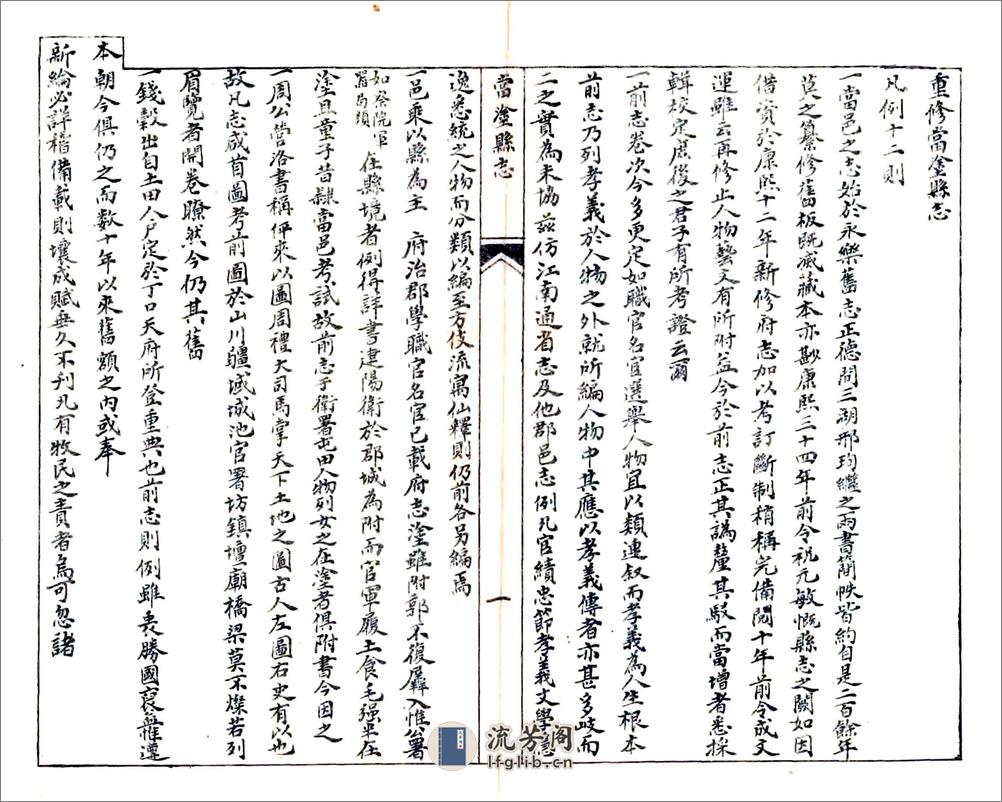 重修當塗縣志
凡例十二則
一當邑之志始於永樂舊志正德間三湖邢珣繼之兩書簡帙皆約自是二百餘年
莫之纂修舊板既滅藏本亦尠康熙三十四年前令祝元敏慨縣志之闕如因
借資於康熙十二年新修府志加以考訂斷制稍稱完備閱十年前令成文
運雖云再修止人物藝文有所附益今於前志正其譌釐其駁而當增者悉採
輯校定庶後之君子有所考證云爾
一前志卷次今多更定如職官名宦選舉人物宜以類連叙而孝義為人生根本
前志乃列孝義於人物之外就所編人物中其應以孝義傳者亦甚多歧而
二之實為未協茲仿江南通省志及他郡邑志例凡官績忠節孝義文學隱
當塗縣志
一
逸悉統之人物而分類以編至方伎流寓仙釋則仍前各另編焉
一邑乘以縣為主 府治郡學職官名宦已載府志塗雖附郭不復羼入惟公署
如察院軍
器局類
在縣境者例得詳書建陽衛於郡城為附而官軍履土食毛強半在
塗且童子昔隸當邑考試故前志于衛署屯田人物列女之在塗者俱附書今因之
一周公營洛書稱伻來以圖周禮大司馬掌天下土地之圖古人左圖右史有以也
故凡志咸首圖考前圖於山川疆域城池官署坊鎮壇廟橋梁莫不燦若列
眉覽者開卷瞭然今仍其舊
一錢穀出自土田人戶定於丁口天府所登重典也前志則例雖喪勝國裒舞遵
本朝今俱仍之而數十年以來舊額之內或奉
新綸必詳稽備載則壤成賦垂久不刊凡有牧民之責者烏可忽諸
流芳阁
lfglib.cn